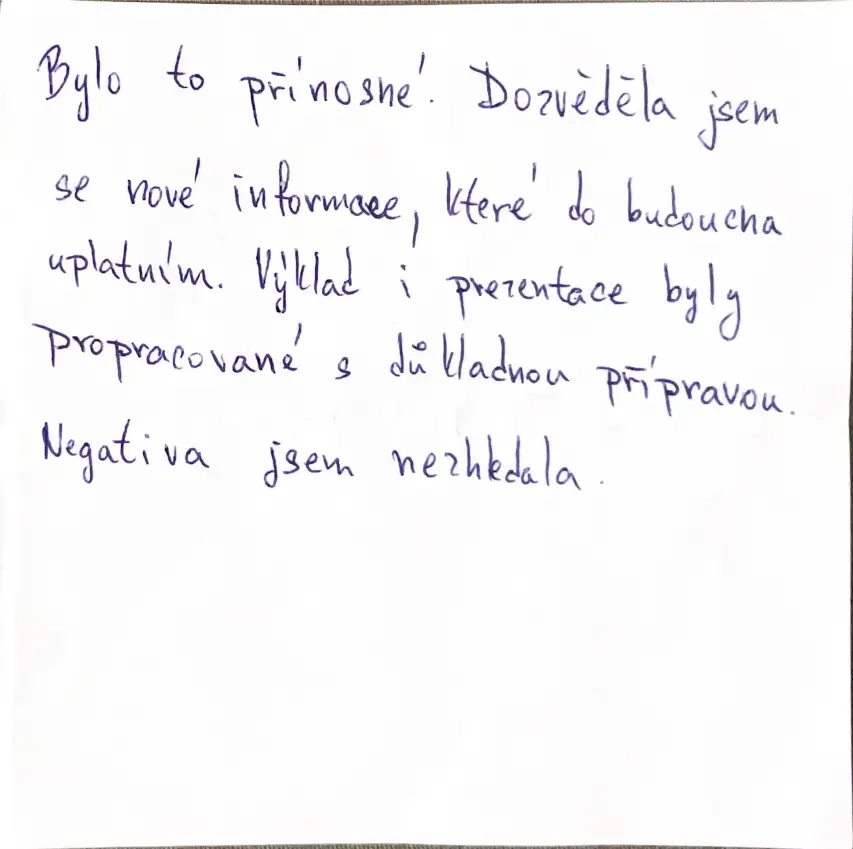 Bylo to přínosné. Dozvěděla jsem
se nové informace, které do budoucna
uplatním. Výklad i prezentace byly
propracované s důkladnou přípravou.
Negativa jsem nezhledala.